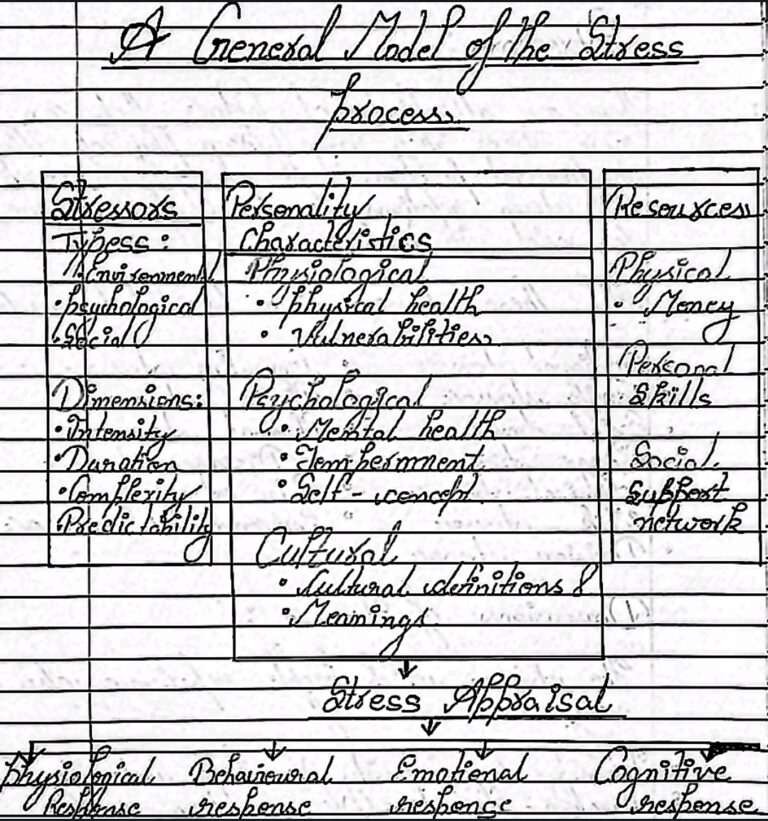 A General Model of the Stress
process
Stressors
Typess :
• Environmental
• psychological
• Social
Dimensions:
• Intensity
• Duration
• Complexity
• Predictability
Personality
Characteristics
Physiological
• physical health
• Vulnerabilities
Psychological
• Mental health
• Temperment
• Self-concept
Cultural
• Cultural definitions &
• Meanings.
Resources
Physical
• Money
Personal
Skills
Social
Support
network
Stress Appraisal
physiological Behavioural Emotional Cognitive
Response response response response